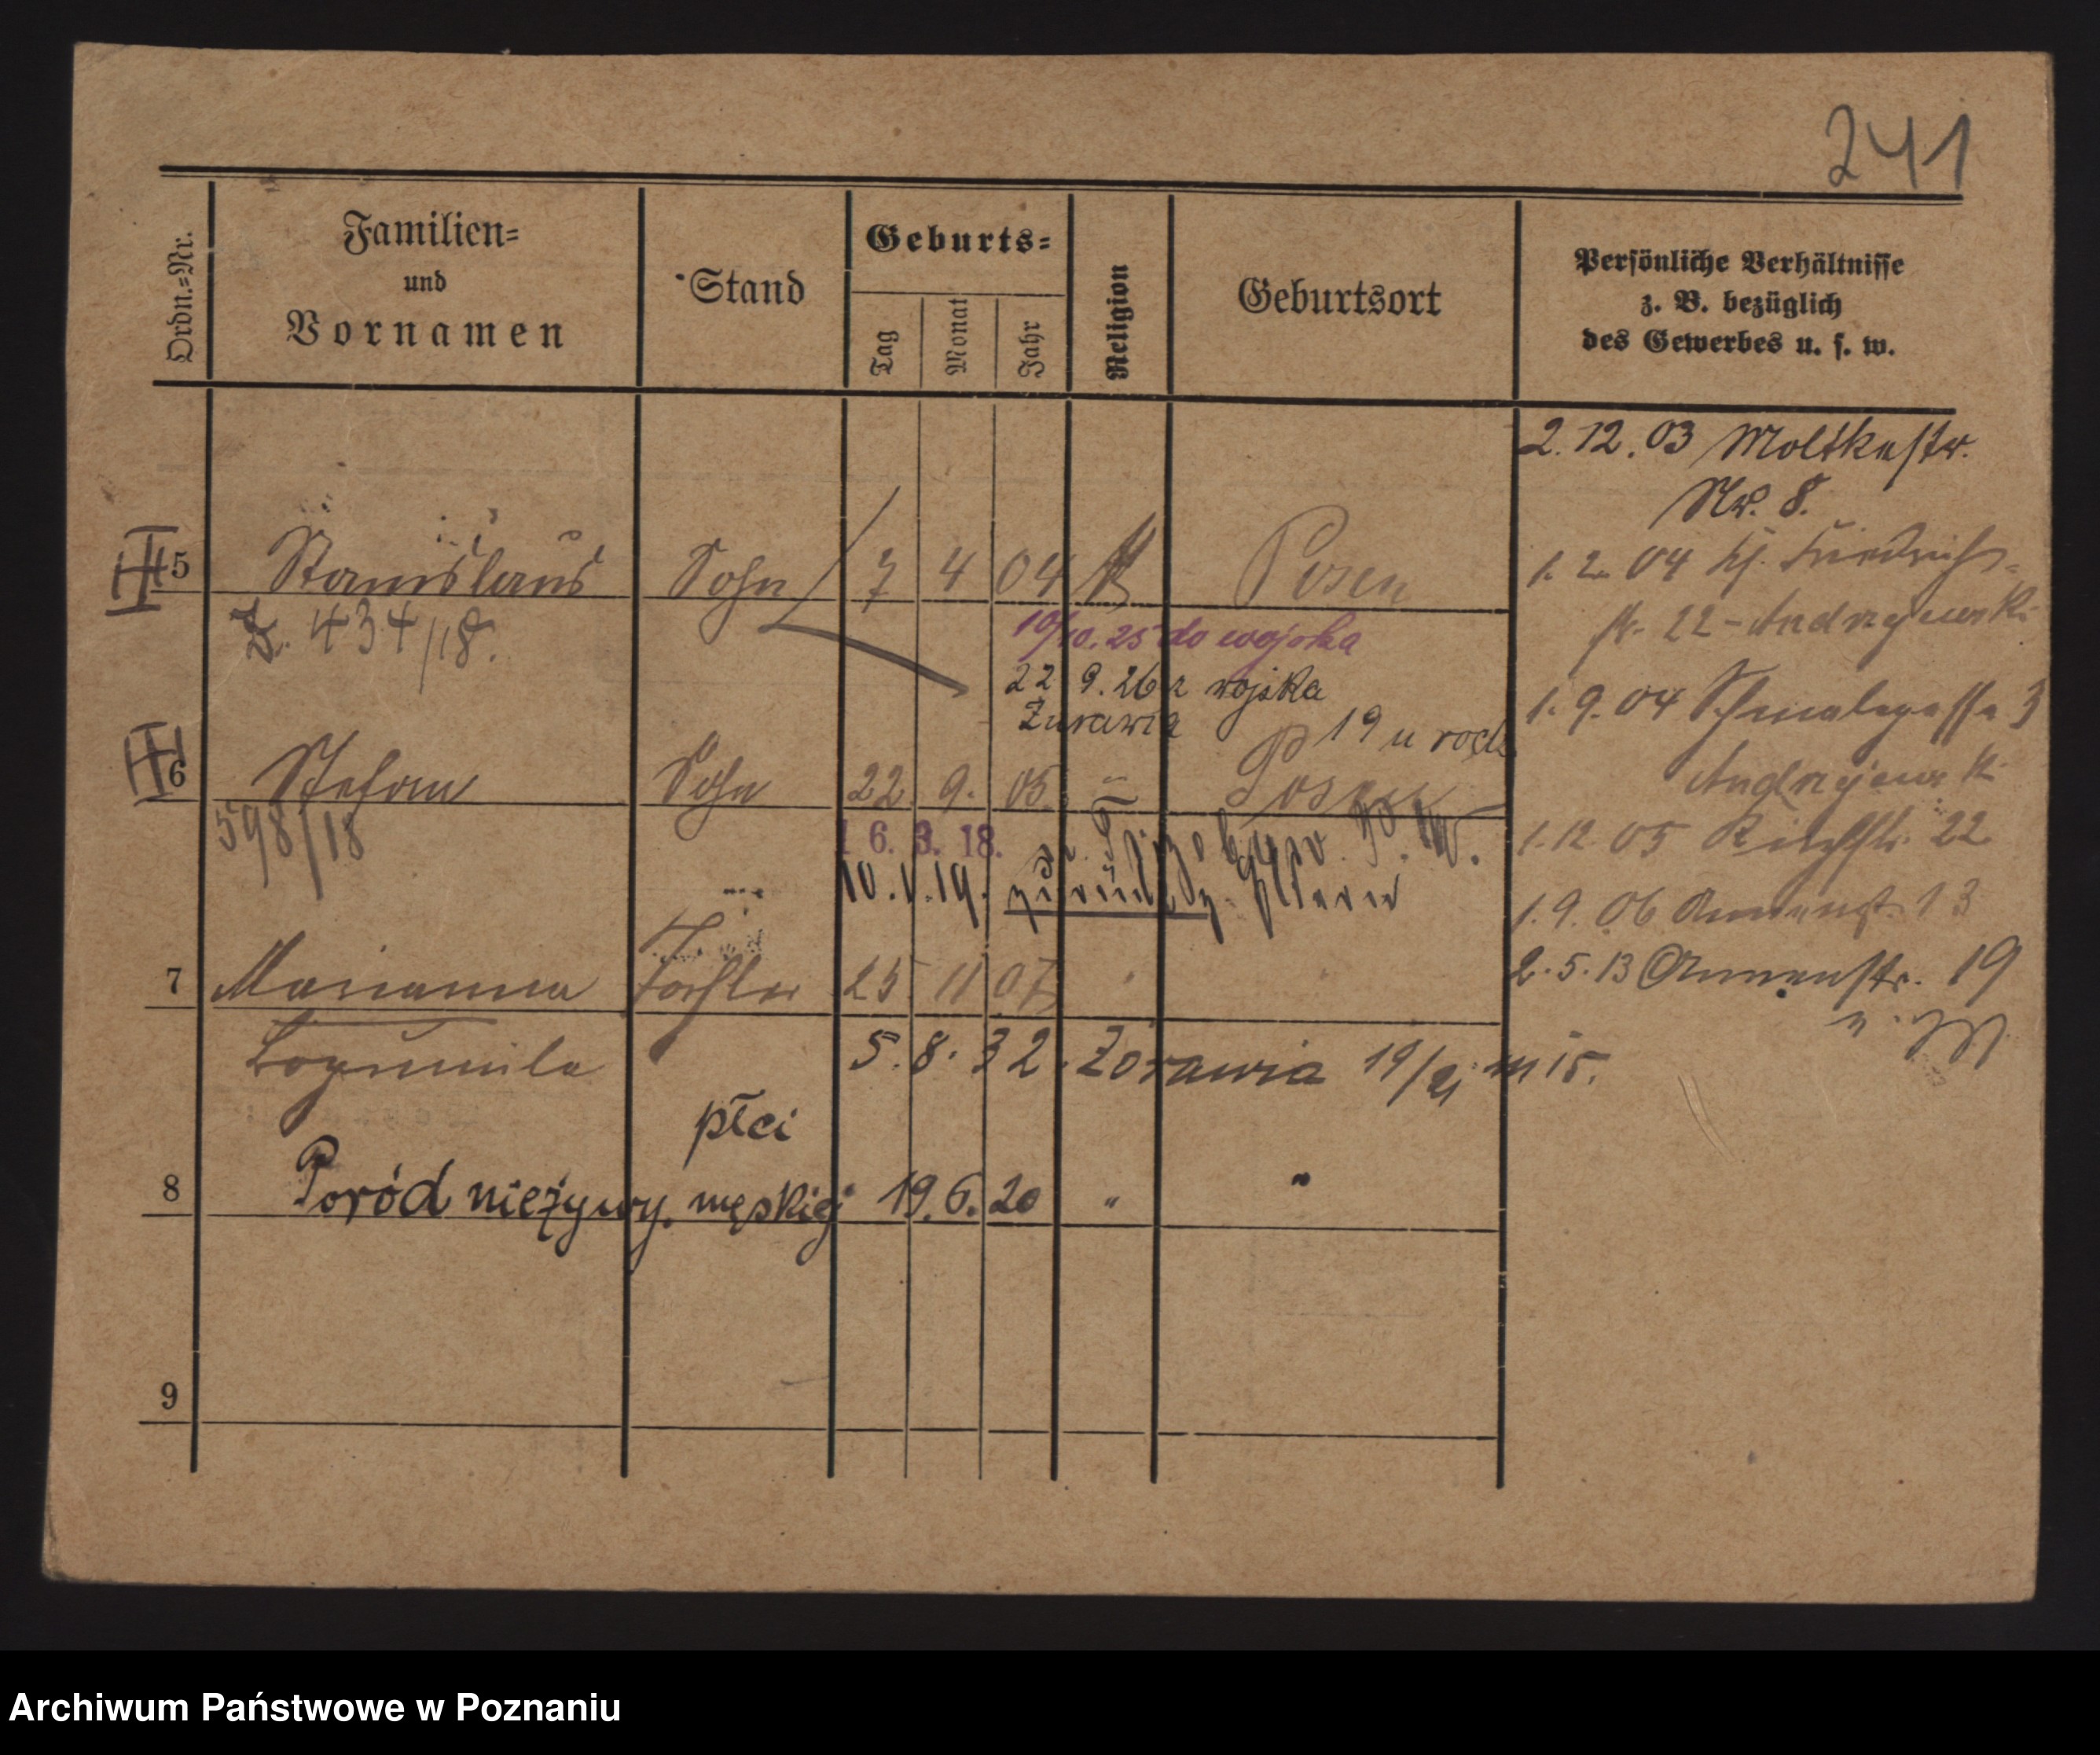 241
Ordn.=Nr.
Familien=
und
Vornamen
Stand
Geburts=
Tag
Monat
Jahr
Religion
Geburtsort
Persönliche Verhältnisse
z. B. bezüglich
des Gewerbes u. s. w.
2.12.03 Moltkestr.
Nr. 8.
5 Stanislaus Sohn 7 4 04 Posen
434/18.
10/10.25 do wojska
22 9.26 z wojska
Żurawia 19 u rodz
1.2.04 Friedrich-
str. 22 - Andrzejewski
1.9.04 3
Andrzejewski
6 Stefan Sohn 22 9. 05 Posen
598/18
1 6. 3. 18.
10.V.19. zurück
1.12.05 22
1.9.06 Annenst. 13
2.5.13 Annenstr. 19
7 Marianna Tochter 25 11 07 "
Bogumila
5.8.32. Żorawia 19/21 m 15.
płci
8 Poród nieżywy. męskiej 19.6.20 " "
9
Archiwum Państwowe w Poznaniu